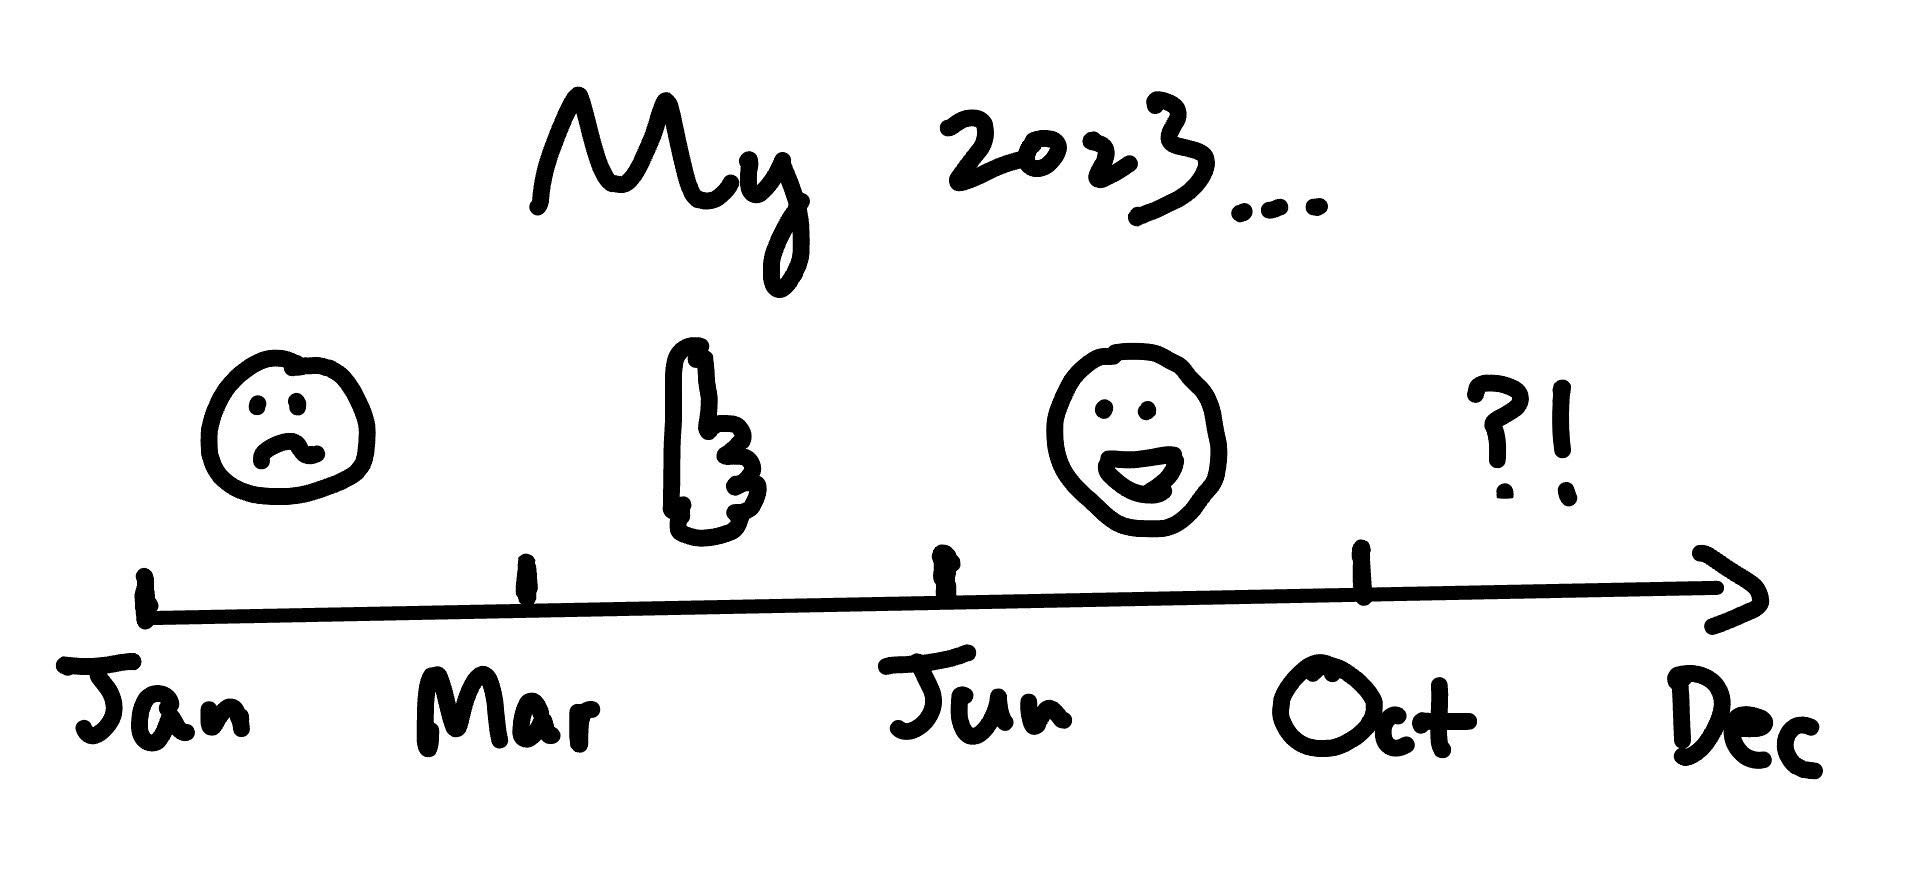 My 2023...
?!
Jan Mar Jun Oct Dec